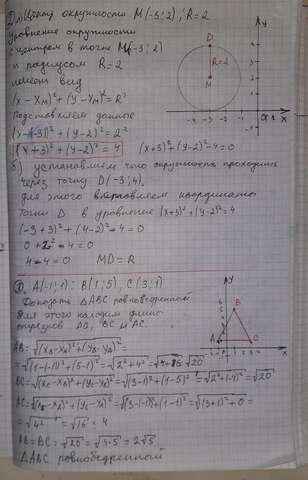 Дано: Центр окружности M(-3; 2), R=2
Уравнение окружности
с центром в точке M(-3; 2)
и радиусом R=2
имеет вид
(x-x_M)²+(y-y_M)²=R²
Подставляем данные
(x-(-3))²+(y-2)²=2²
(x+3)²+(y-2)²=4 (x+3)²+(y-2)²-4=0
D
R=2
M
x
y
б) установим что окружность проходит
через точку D(-3; 4),
для этого подставляем координаты
точки D в уравнение (x+3)²+(y-2)²=4
(-3+3)²+(4-2)²-4=0
0+2²-4=0
4-4=0 MD=R
A(-1; 1); B(1; 5), C(3; 1)
Доказать ΔABC равнобедренный
Для этого находим длины
отрезков AB, BC и AC.
AB=√(x_B-x_A)²+(y_B-y_A)²=
=√(1-(-1))²+(5-1)²=√2²+4²=√4+16=√20
BC=√(x_C-x_B)²+(y_C-y_B)²=√(3-1)²+(1-5)²=√2²+(-4)²=√20
AC=√(x_C-x_A)²+(y_C-y_A)²=√(3-(-1))²+(1-1)²=√(3+1)²+0=
=√4²=√16=4
AB=BC=√20=√4·5=2√5
ΔABC равнобедренный
y
B
A
C
x